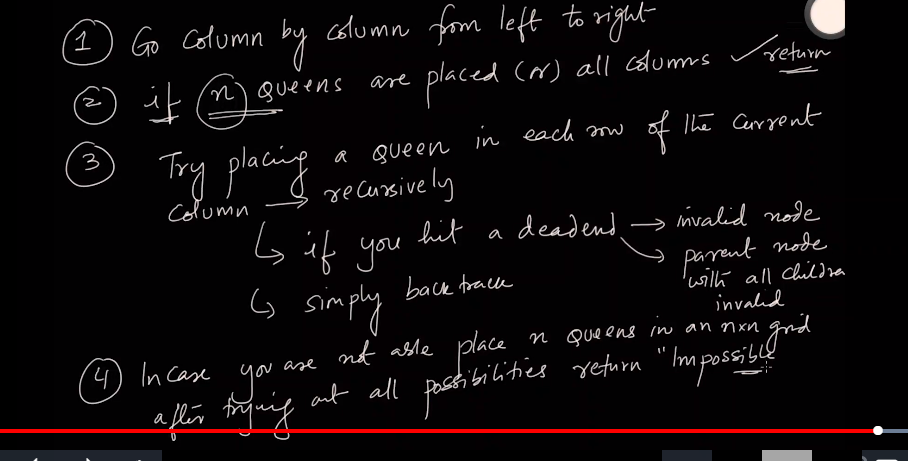 1 Go column by column from left to right
2 if n Queens are placed (or) all columns ✓ return
3 Try placing a queen in each row of the current
column → recursively
↳ if you hit a deadend → invalid node
→ parent node
with all children
invalid
↳ simply backtrack
4 Incase you are not able place n Queens in an nxn grid
after trying out all possibilities return "Impossible